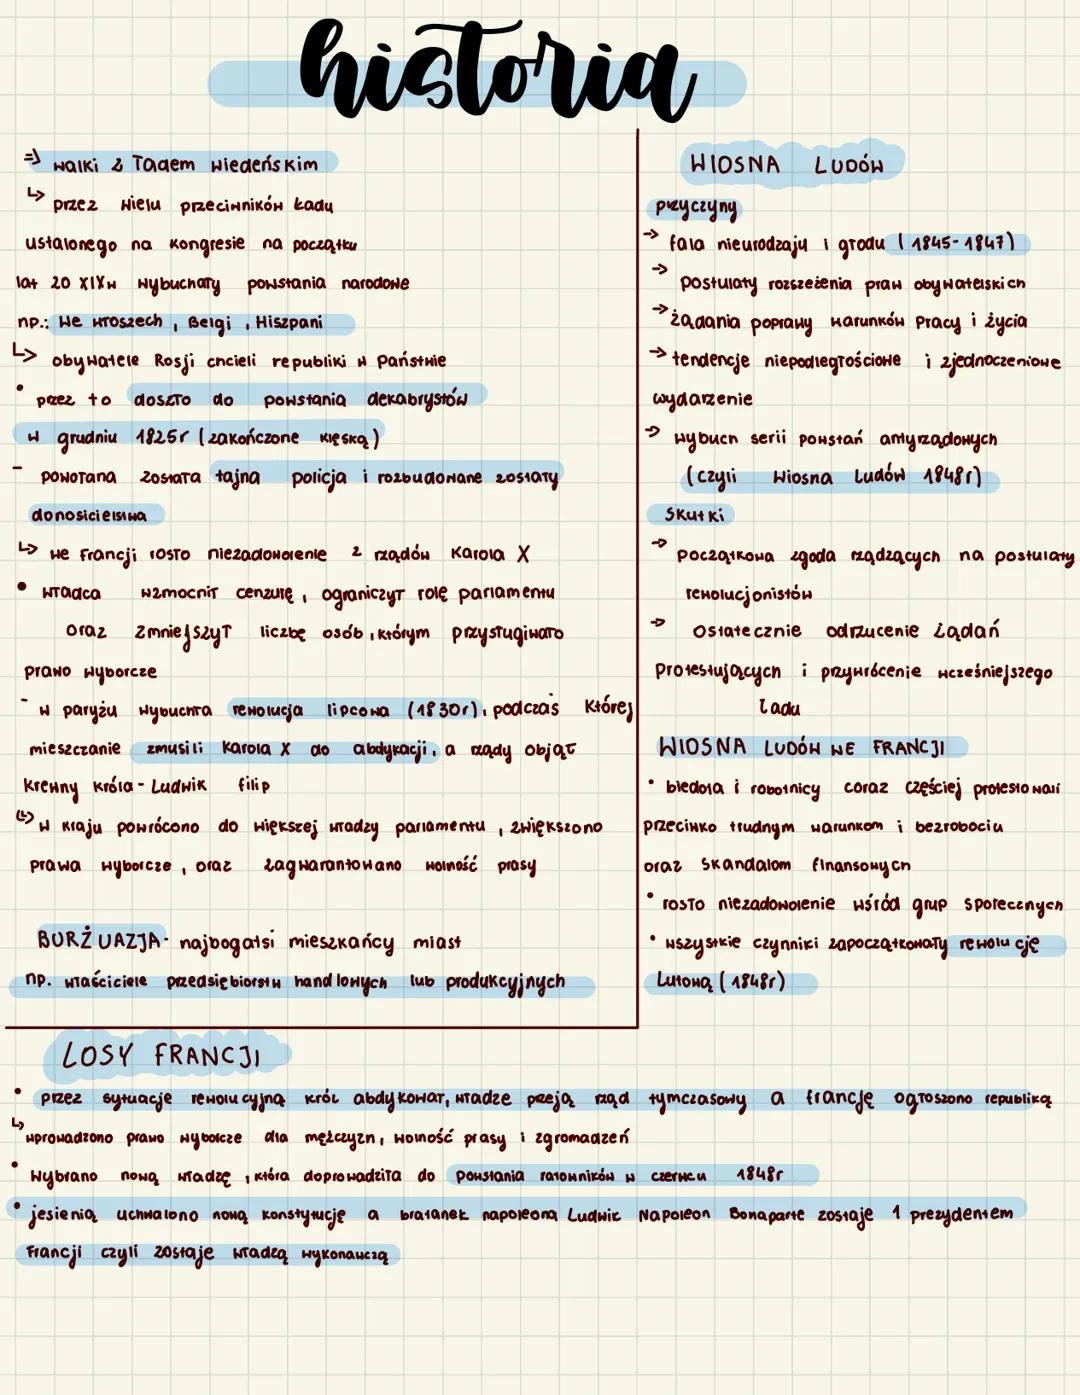 historia
=> walki z ładem wiedeńskim
↳ przez wielu przeciwników ładu
ustalonego na kongresie na początku
lat 20 XIXw wybuchały powstania narodowe
np.: we włoszech, Belgi, Hiszpani
↳ obywatele Rosji chcieli republiki w państwie
• przez to doszło do powstania dekabrystów
w grudniu 1825r (zakończone klęską)
- powołana została tajna policja i rozbudowane zostały
donosicielstwa
↳ we francji rosło niezadowolenie z rządów Karola X
• władca wzmocnił cenzurę, ograniczył rolę parlamentu
oraz zmniejszył liczbę osób, którym przysługiwało
prawo wyborcze
- w paryżu wybuchła rewolucja lipcowa (1830r), podczas której
mieszczanie zmusili Karola X do abdykacji, a rządy objął
krewny króla - Ludwik filip
(↳) w kraju powrócono do większej władzy parlamentu, zwiększono
prawa wyborcze, oraz zagwarantowano wolność prasy
BURŻUAZJA - najbogatsi mieszkańcy miast
np. właściciele przedsiębiorstw handlowych lub produkcyjnych
WIOSNA LUDÓW
przyczyny
→ fala nieurodzaju i głodu (1845-1847)
→ postulaty rozszeżenia praw obywatelskich
→ żądania poprawy warunków pracy i życia
→ tendencje niepodległościowe i zjednoczeniowe
wydarzenie
→ wybuch serii powstań antyrządowych
(czyli Wiosna Ludów 1848r)
Skutki
→ początkowa zgoda rządzących na postulaty
rewolucjonistów
→ Ostatecznie odrzucenie żądań
protestujących i przywrócenie wcześniejszego
ładu
WIOSNA LUDÓW WE FRANCJI
• biedota i robotnicy coraz częściej protestowali
przeciwko trudnym warunkom i bezrobociu
oraz skandalom finansowych
• rosło niezadowolenie wśród grup społecznych
• wszystkie czynniki zapoczątkowały rewolucję
Lutową (1848r)
LOSY FRANCJI
• przez sytuacje rewolucyjną król abdykował, władze przeją rząd tymczasowy a francję ogłoszono republiką
↳ wprowadzono prawo wyborcze dla mężczyzn, wolność prasy i zgromadzeń
• Wybrano nową władzę, która doprowadziła do powstania ratowników w czerwcu 1848r
• jesienią uchwalono nową konstytucję a bratanek napoleona Ludwik Napoleon Bonaparte zostaje 1 prezydentem
Francji czyli zostaje władzą wykonawczą